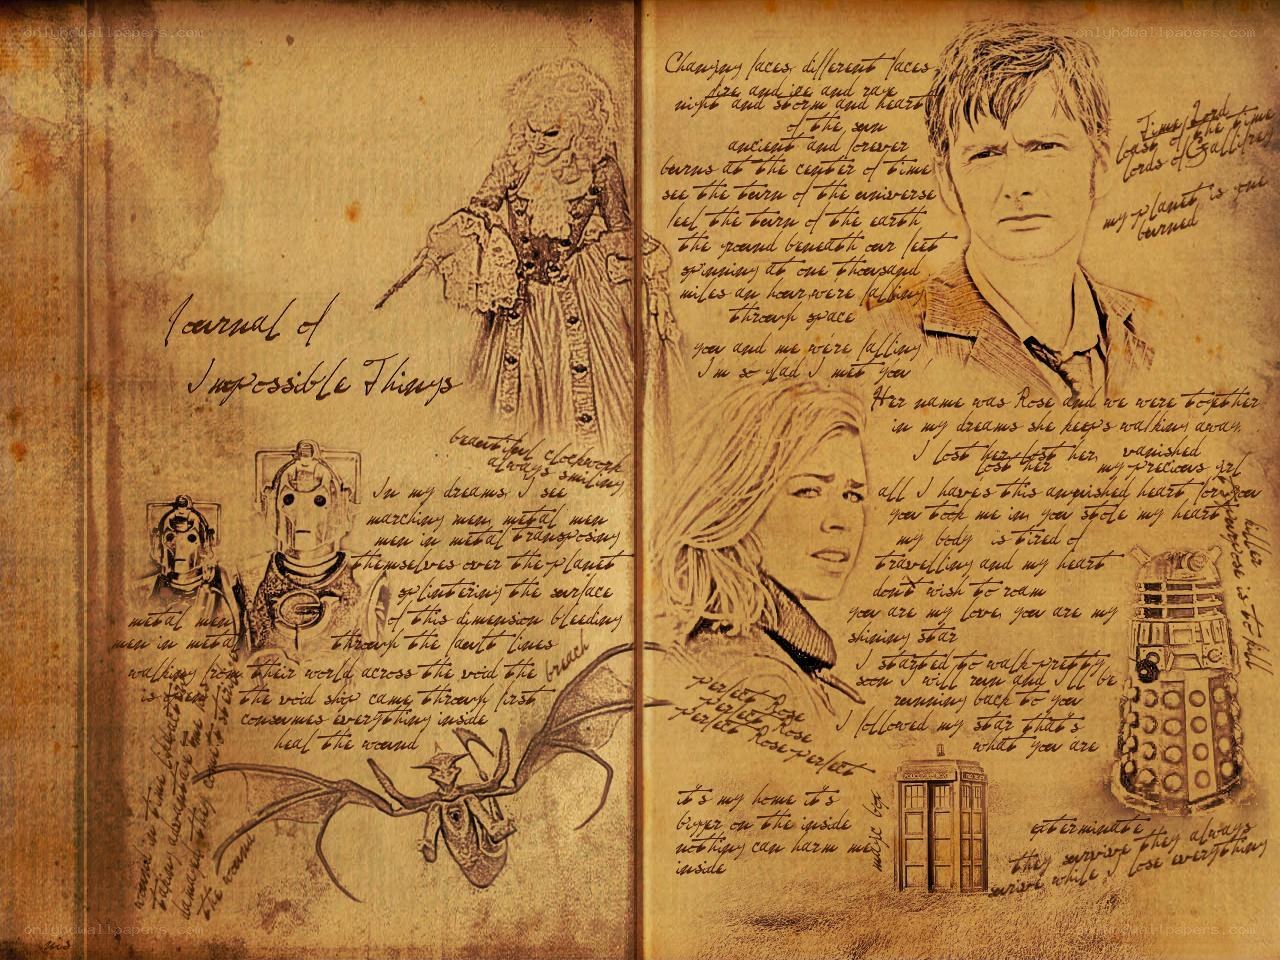 onlyhdwallpapers.com
onlyhdwallpapers.com
Journal of
Impossible Things
beautiful clockwork
always smiling
In my dreams, I see
marching men, metal men
men in metal transposing
themselves over the planet
splintering the surface
of this dimension bleeding
through the fault lines
metal men
men in metal
walking from their world across the void the breach
is the void ship came through first
consumes everything inside
heal the wound
wound in time
the wound
Changing faces, different faces,
fire and ice and rage
night and storm and heart
of the sun
ancient and forever
burns at the center of time
see the turn of the universe
feel the turn of the earth
the ground beneath our feet
spinning at one thousand
miles an hour, were falling
through space
you and me were falling
I'm so glad I met you
Time Lord
last of the time
lords of Gallifrey
my planet is gone
burned
Her name was Rose and we were together
in my dreams she keeps walking away,
I lost her, lost her, vanished
lost her my precious girl
all I have is this anguished heart, for you
you took me in, you stole my heart
my body is tired of
travelling and my heart
don't wish to roam
you are my love, you are my
shining star
I started to walk pretty
soon I will run and I'll be
running back to you
I followed my star that's
what you are
killer
purpose is to kill
perfect Rose
perfect Rose
perfect Rose perfect
it's my home it's
bigger on the inside
nothing can harm me
inside
magic box
exterminate
they survive they always
survive while I lose everything
onlyhdwallpapers.com
onlyhdwallpapers.com